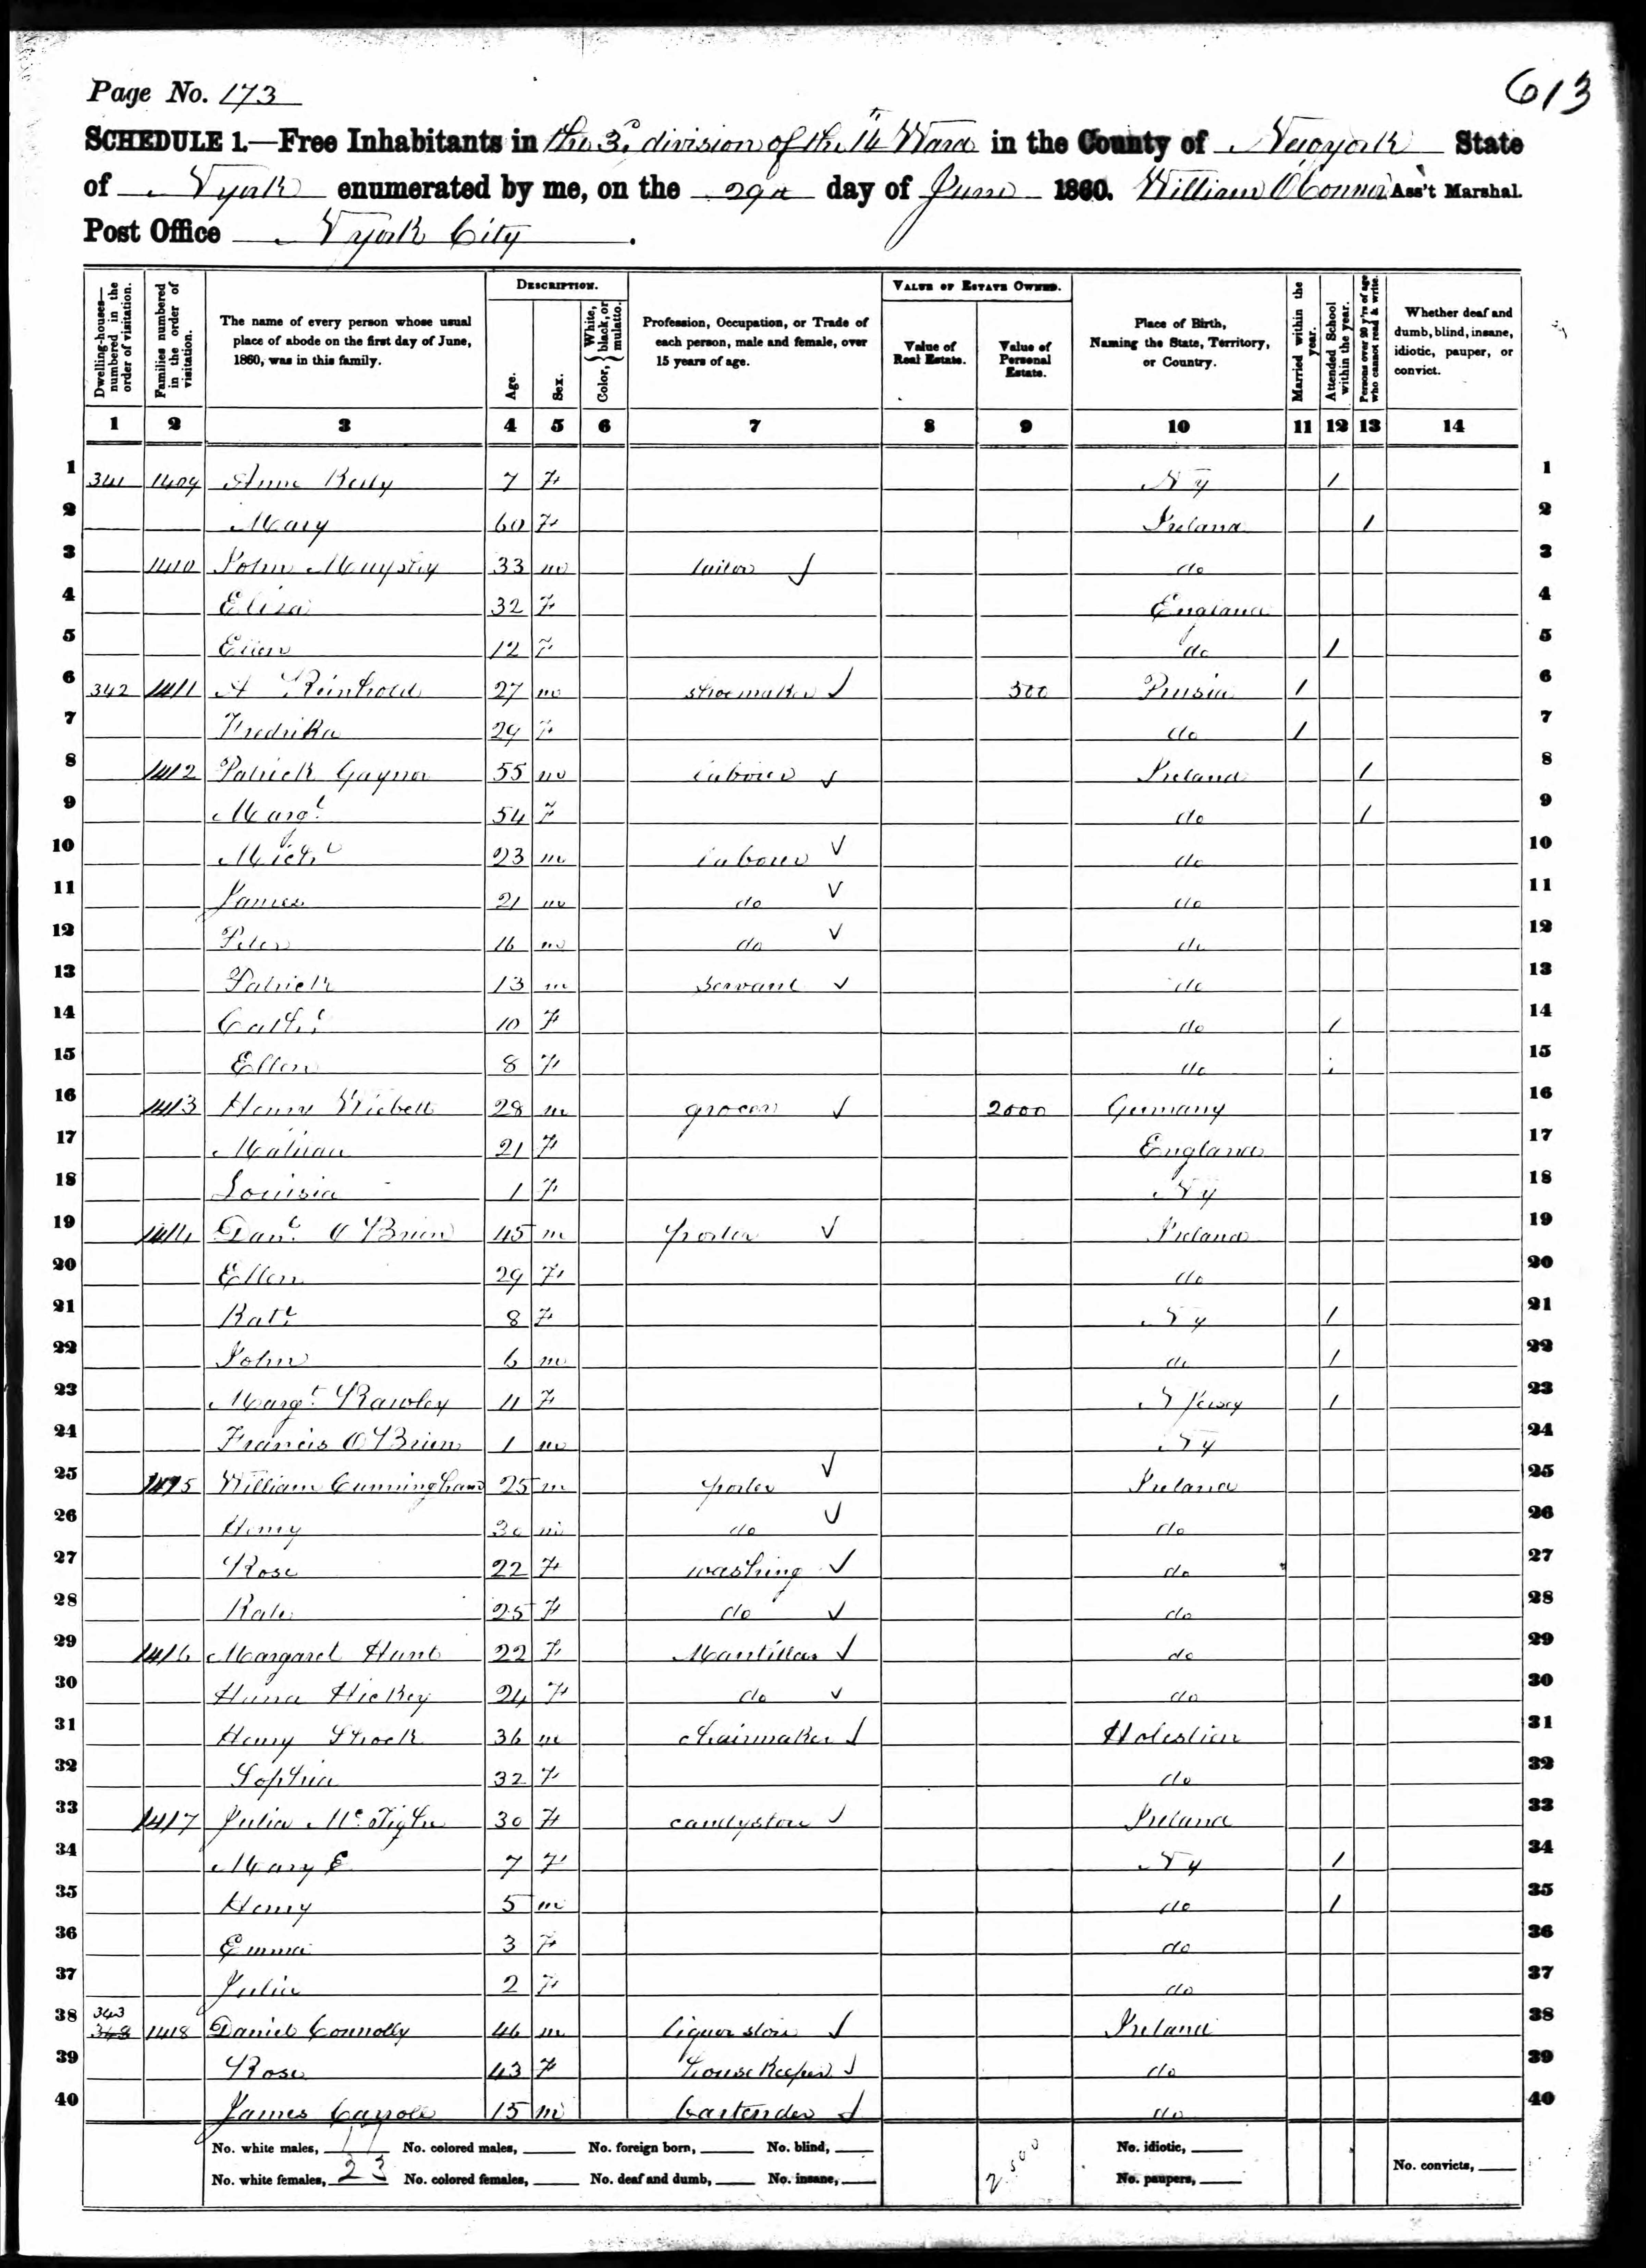 Page No. 173
613
SCHEDULE 1.—Free Inhabitants in the 3d division of the 14th Ward in the County of Newyork State
of Nyork enumerated by me, on the 29th day of June 1860. William O'Connor Ass't Marshal.
Post Office Nyork City.
DESCRIPTION.
VALUE OF ESTATE OWNED.
Dwelling-houses—numbered in the order of visitation.
Families numbered in the order of visitation.
The name of every person whose usual place of abode on the first day of June, 1860, was in this family.
Age.
Sex.
Color, { White, black, or mulatto.
Profession, Occupation, or Trade of each person, male and female, over 15 years of age.
Value of Real Estate.
Value of Personal Estate.
Place of Birth, Naming the State, Territory, or Country.
Married within the year.
Attended School within the year.
Persons over 20 y'rs of age who cannot read & write.
Whether deaf and dumb, blind, insane, idiotic, pauper, or convict.
1 2 3 4 5 6 7 8 9 10 11 12 13 14
1 341 1409 Anne 7 F NY 1 1
2 Mary 60 F Ireland 1 2
3 1410 John 33 m tailor do 3
4 Eliza 32 F England 4
5 Ellen 12 F do 1 5
6 342 1411 A Reinhold 27 m shoemaker 500 Prusia 1 6
7 Fredrika 29 F do 1 7
8 1412 Patrick Gaynor 55 m labourer Ireland 1 8
9 Margt 54 F do 1 9
10 Michl 23 m labourer do 10
11 James 21 m do do 11
12 Peter 16 m do do 12
13 Patrick 13 m servant do 13
14 Cathe 10 F do 1 14
15 Ellen 8 F do 1 15
16 1413 Henry 28 m grocer 2000 Germany 16
17 21 F England 17
18 Louisia 1 F NY 18
19 1414 Danl O'Brien 45 m porter Ireland 19
20 Ellen 29 F do 20
21 Kate 8 F NY 1 21
22 John 6 m do 1 22
23 Margt Rawley 11 F N Jersey 1 23
24 Francis O'Brien 1 m NY 24
25 1415 William Cunningham 25 m porter Ireland 25
26 Henry 30 m do do 26
27 Rose 22 F washing do 27
28 Kate 25 F do do 28
29 1416 Margaret Hunt 22 F Mantillas do 29
30 Hana Hickey 24 F do do 30
31 Henry Strock 36 m chairmaker Holestien 31
32 Sophia 32 F do 32
33 1417 Julia McTighe 30 F candystore Ireland 33
34 Mary E 7 F NY 1 34
35 Henry 5 m do 1 35
36 Emma 3 F do 36
37 Julia 2 F do 37
38 343 348 1418 Daniel Connolly 46 m liquor store Ireland 38
39 Rose 43 F houseKeeper do 39
40 James Carroll 15 m bartender do 40
No. white males, 17 No. colored males, No. foreign born, No. blind, No. idiotic,
No. white females, 23 No. colored females, No. deaf and dumb, No. insane, 2500 No. paupers, No. convicts,